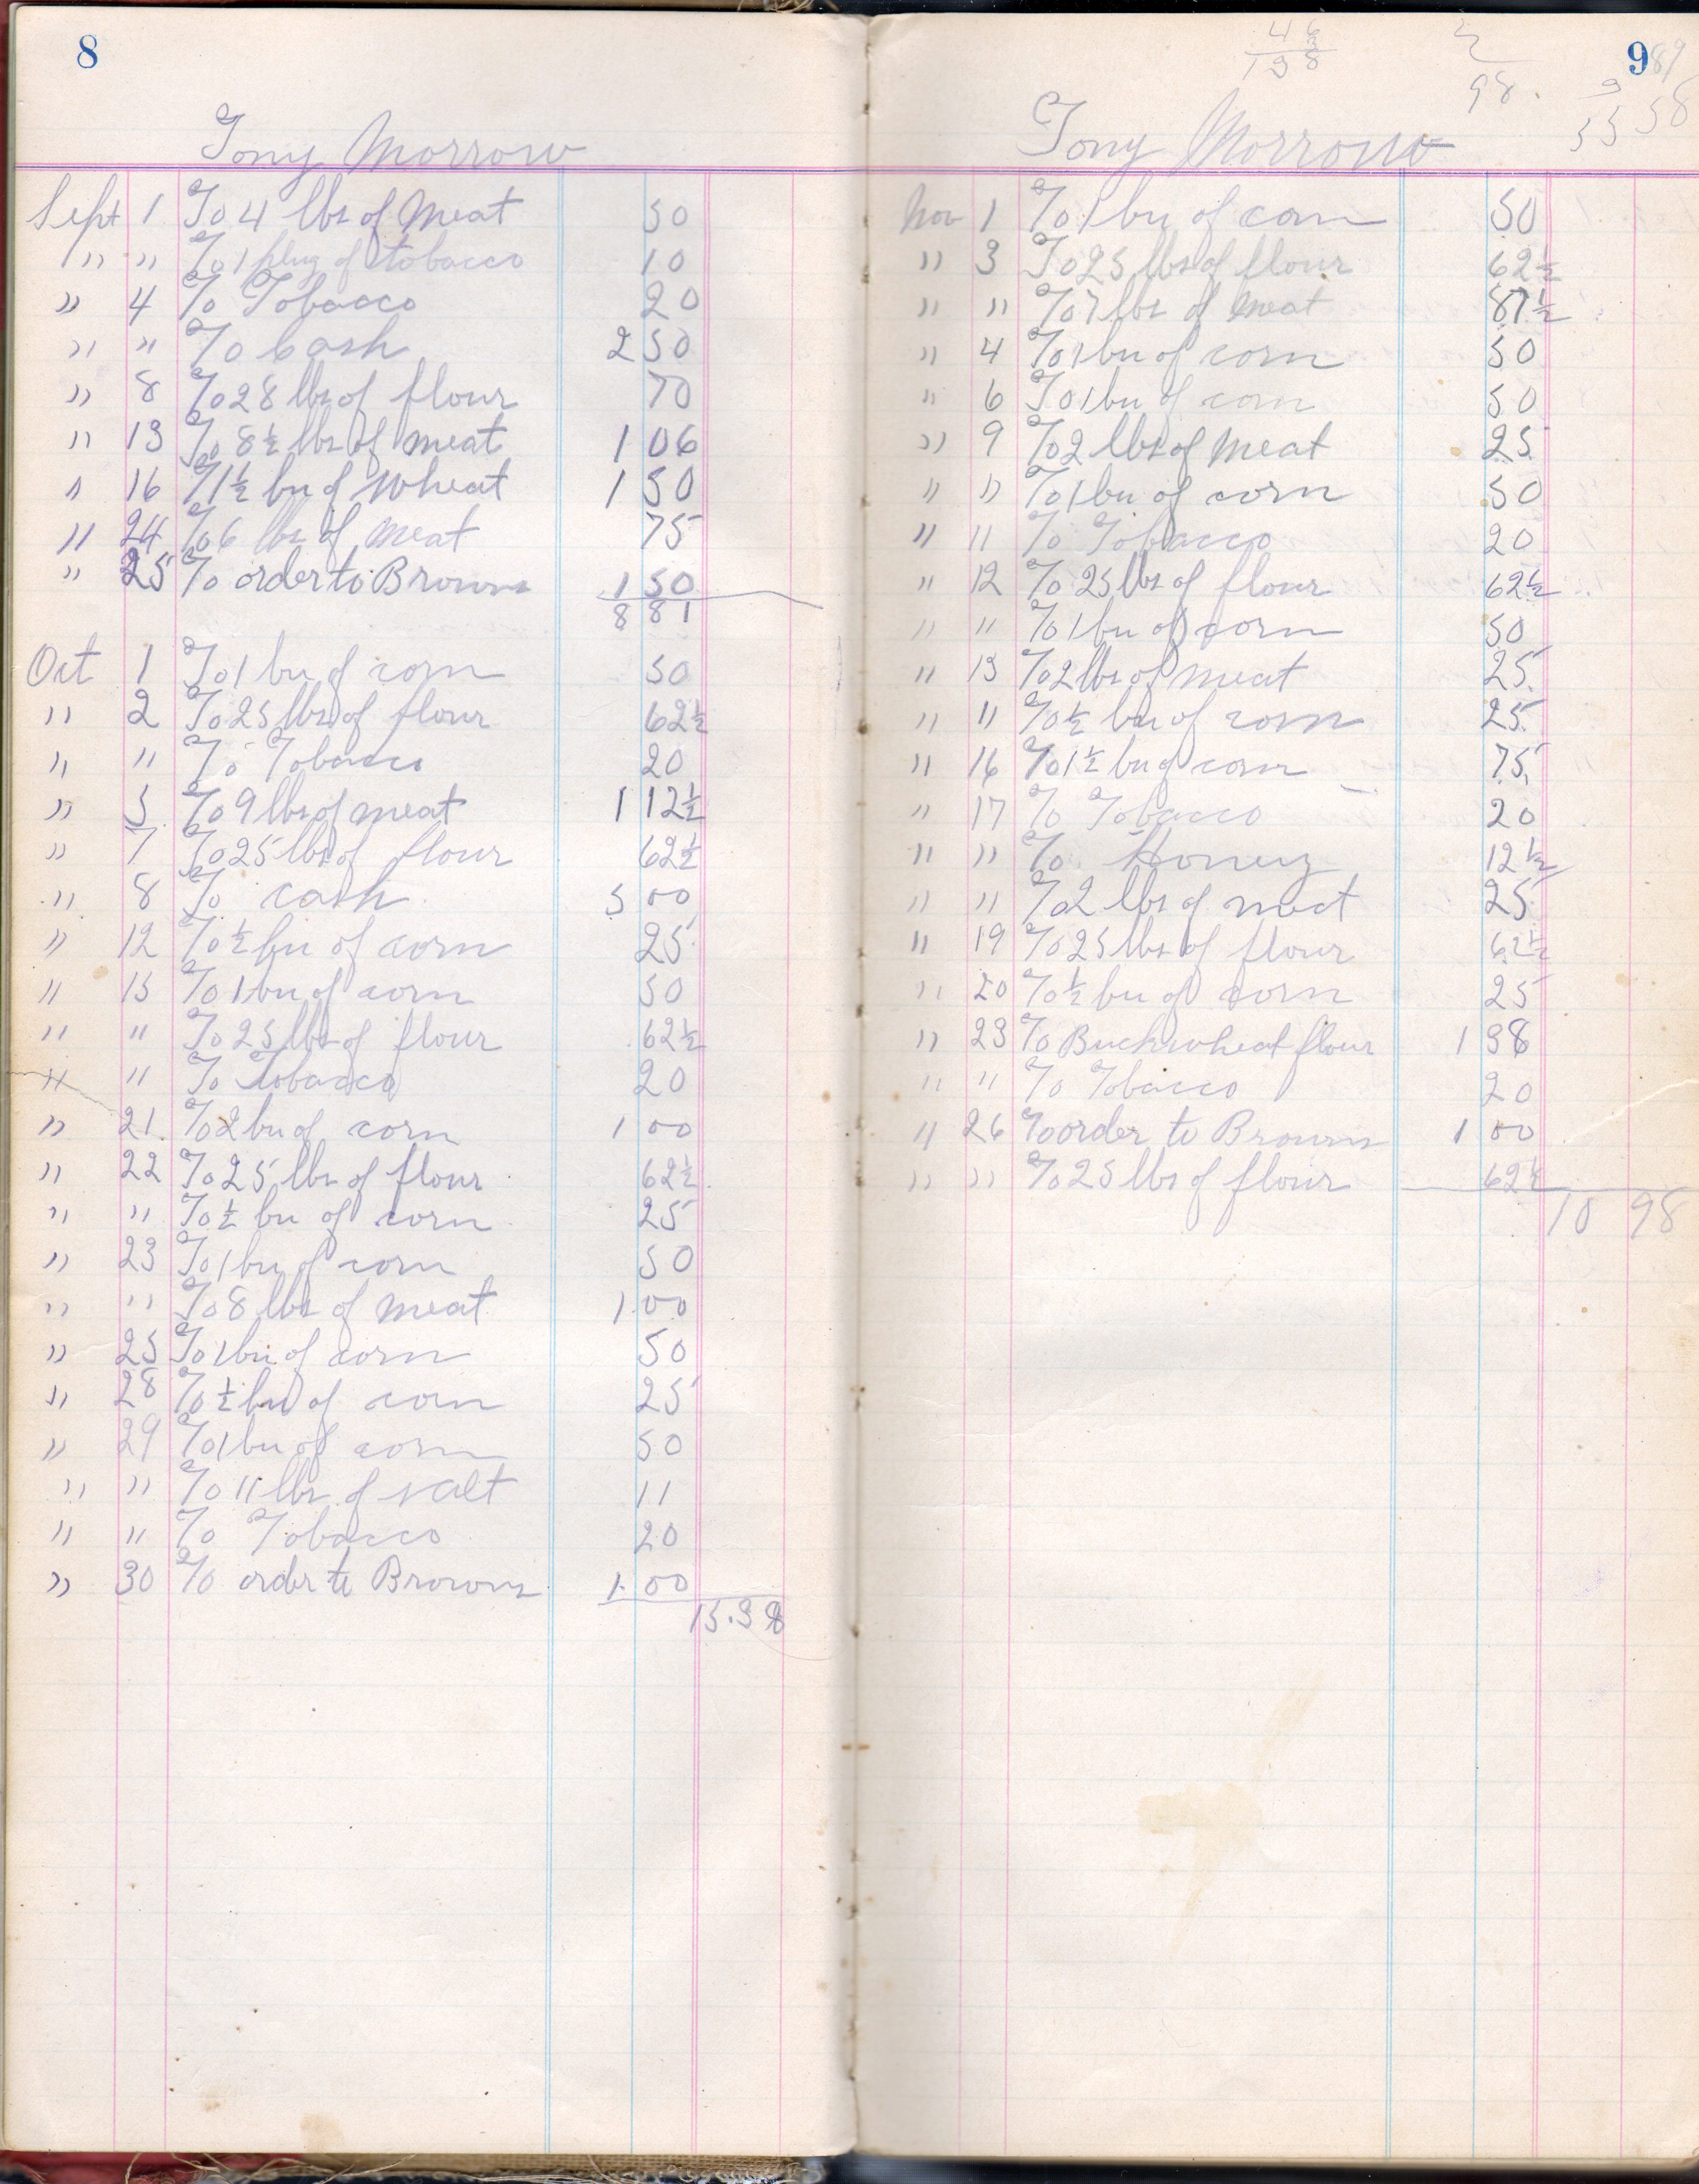 8
Tony Morrow
Sept 1 To 4 lbs of Meat 50
" " To 1 plug of tobacco 10
" 4 To Tobacco 20
" " To Cash 2 50
" 8 To 28 lbs of flour 70
" 13 To 8½ lbs of meat 1 06
" 16 To 1½ bu of Wheat 1 50
" 24 To 6 lbs of Meat 75
" 25 To order to Browns 1 50
8 81
Oct 1 To 1 bu of corn 50
" 2 To 25 lbs of flour 62½
" " To Tobacco 20
" 5 To 9 lbs of meat 1 12½
" 7 To 25 lbs of flour 62½
" 8 To cash 5 00
" 12 To ½ bu of corn 25
" 15 To 1 bu of corn 50
" " To 25 lbs of flour 62½
" " To Tobacco 20
" 21 To 2 bu of corn 1 00
" 22 To 25 lbs of flour 62½
" " To ½ bu of corn 25
" 23 To 1 bu of corn 50
" " To 8 lbs of meat 1 00
" 25 To 1 bu of corn 50
" 28 To ½ bu of corn 25
" 29 To 1 bu of corn 50
" " To 11 lbs of salt 11
" " To Tobacco 20
" 30 To order to Browns 1 00
15.38
9
46
138
98.
Tony Morrow
Nov 1 To 1 bu of corn 50
" 3 To 25 lbs of flour 62½
" " To 7 lbs of meat 87½
" 4 To 1 bu of corn 50
" 6 To 1 bu of corn 50
" 9 To 2 lbs of Meat 25
" " To 1 bu of corn 50
" 11 To Tobacco 20
" 12 To 25 lbs of flour 62½
" " To 1 bu of corn 50
" 13 To 2 lbs of meat 25
" " To ½ bu of corn 25
" 16 To 1½ bu of corn 75
" 17 To Tobacco 20
" " To Honey 12½
" " To 2 lbs of meat 25
" 19 To 25 lbs of flour 62½
" 20 To ½ bu of corn 25
" 23 To Buckwheat flour 1 38
" " To Tobacco 20
" 26 To order to Browns 1 00
" " To 25 lbs of flour 62½
10 98